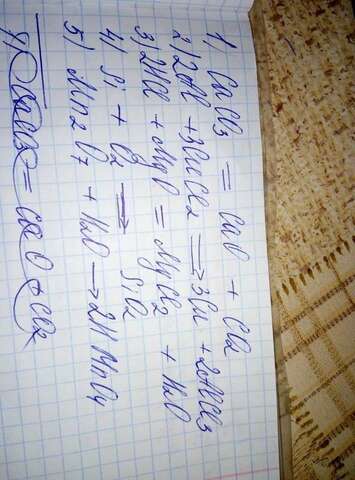 1) CaCO3 = CaO + CO2
2) 2Al + 3CuCl2 → 3Cu + 2AlCl3
3) 2HCl + MgO = MgCl2 + H2O
4) Si + O2 → SiO2
5) Mn2O7 + H2O → 2HMnO4
CaCO3 = CaO + CO2